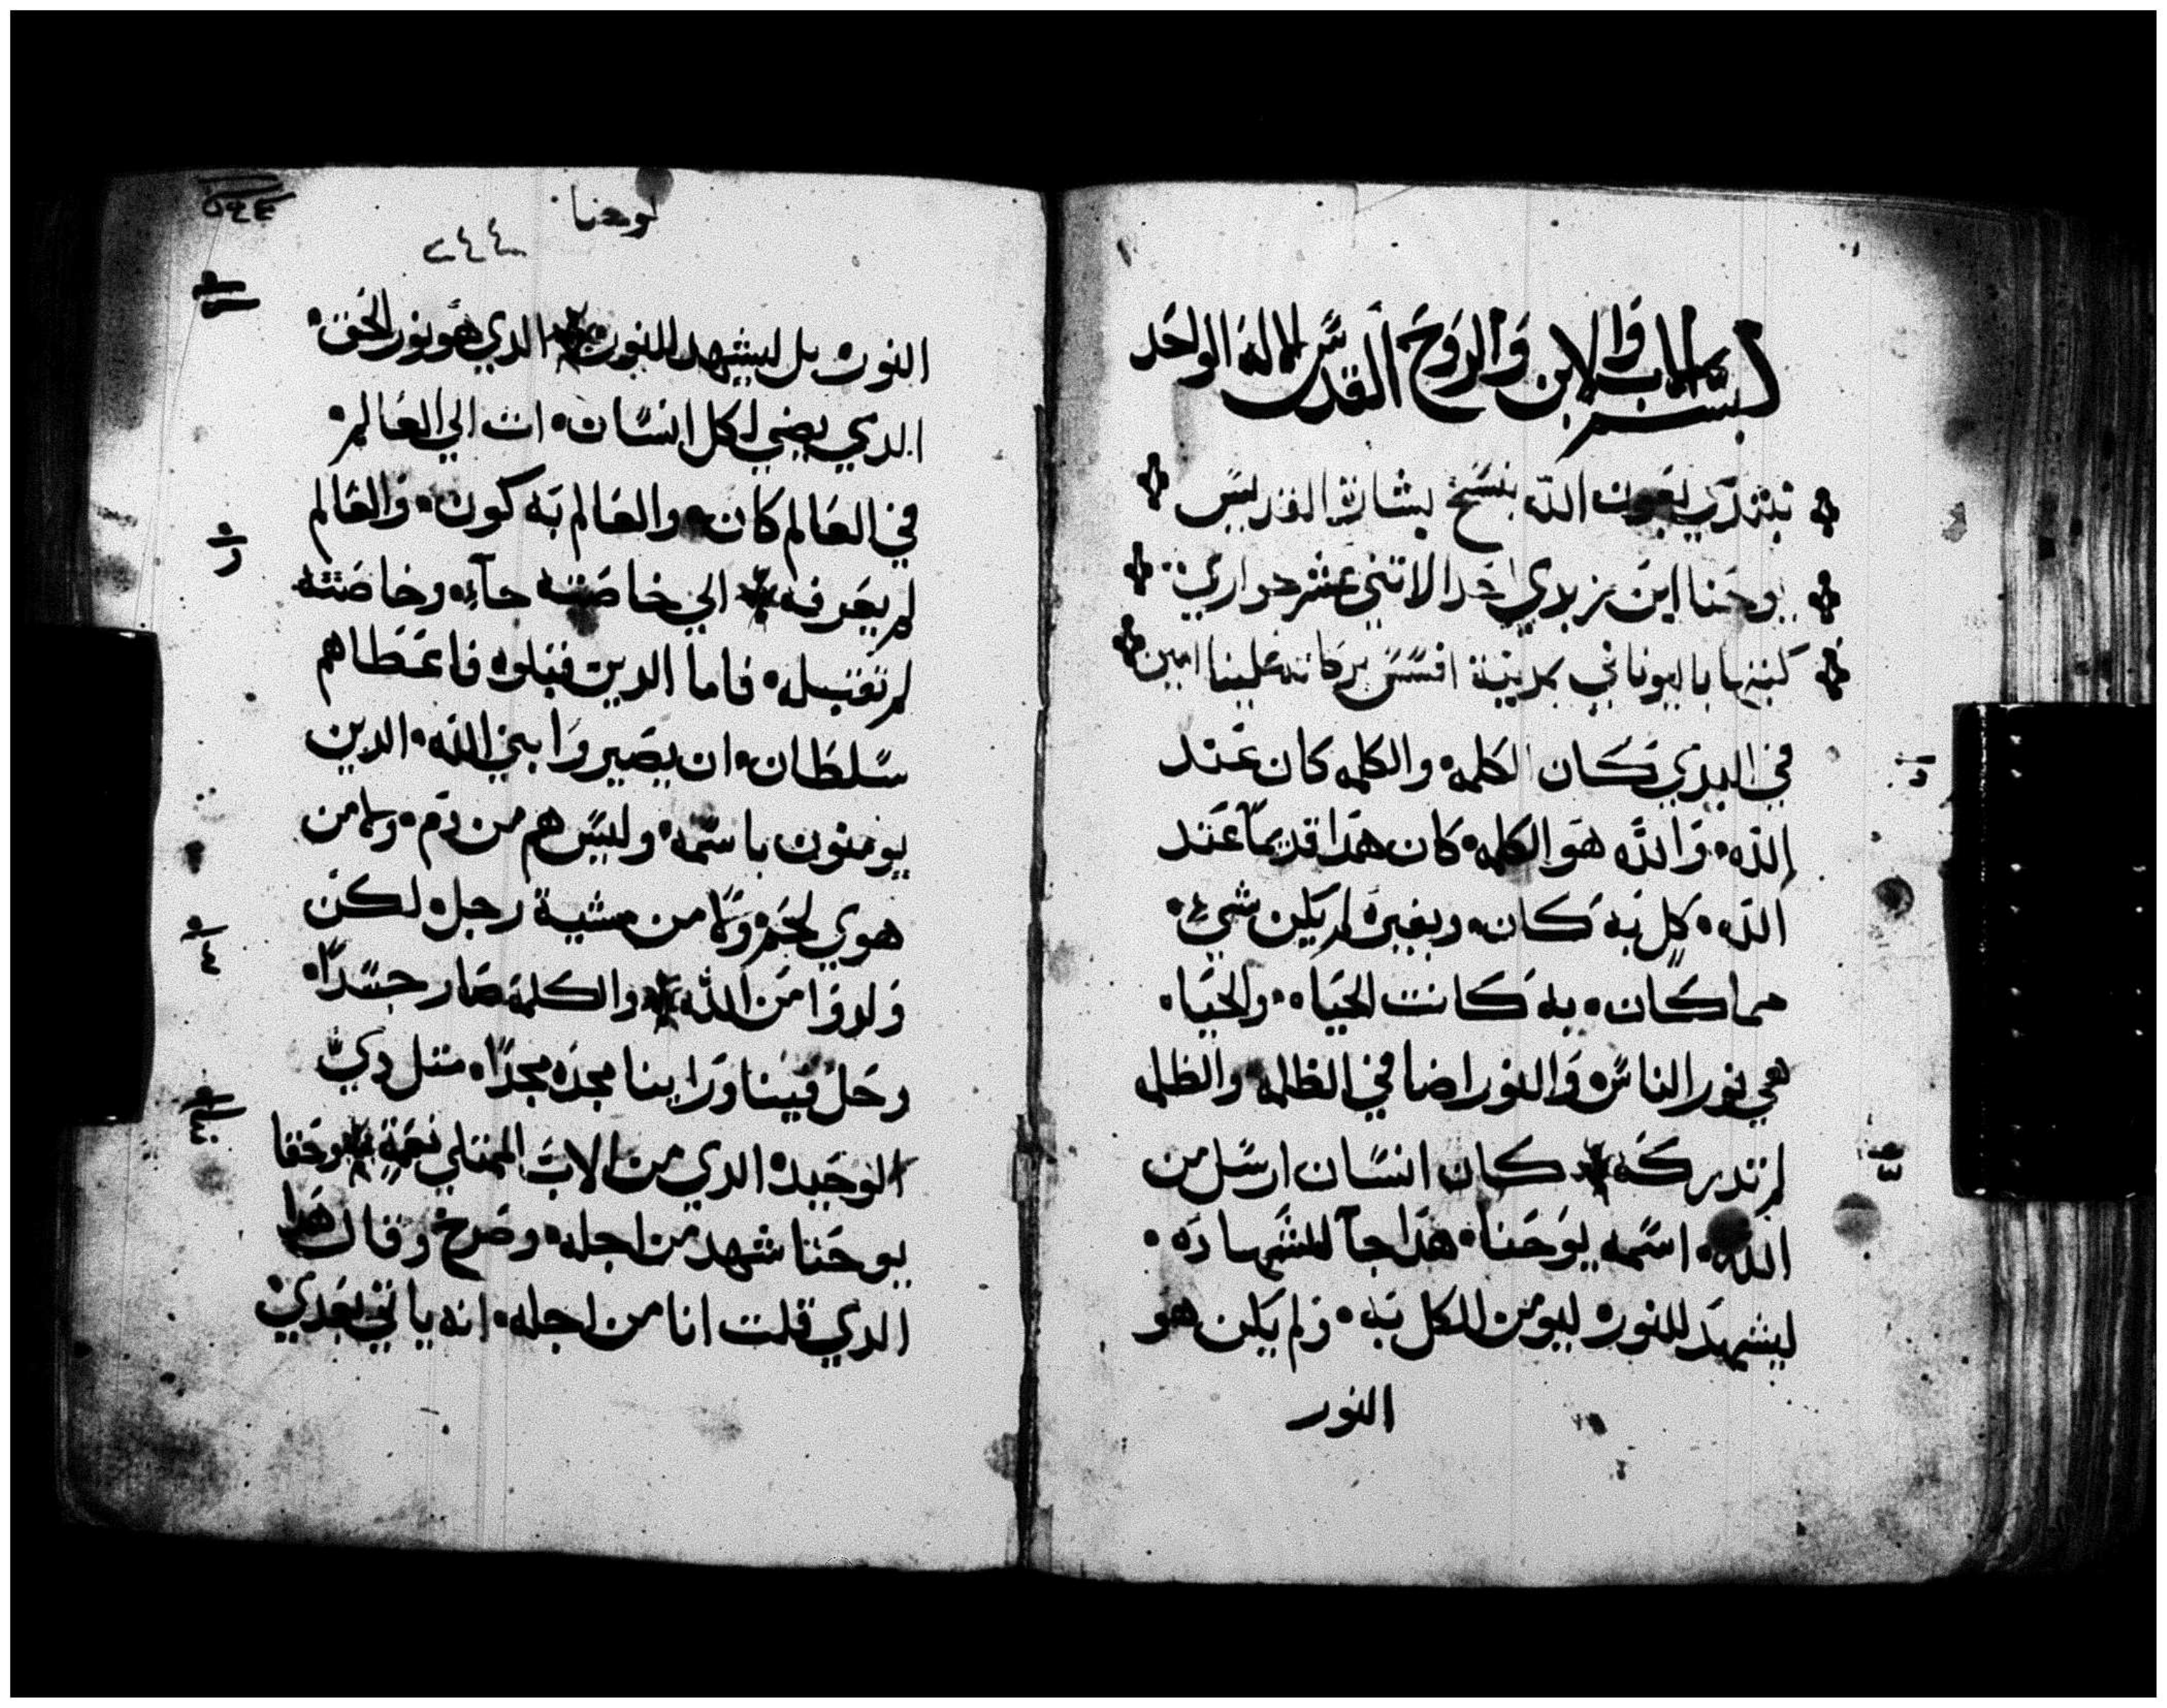 بسم الاب والابن والروح القدس الاله الواحد
نبتدي بعون الله بنسخ بشارة القديس
يوحنا ابن زبدي احد الاتني عشر حواري
كتبها باليوناني بمدينة افسس بركاته علينا امين
في البدي كان الكلمه والكلمه كان عند
الله والله هو الكلمه كان هدا قديماً عند
الله كل به كان وبغيره لم يكن شيء
مما كان به كانت الحياه والحياه
هي نور الناس والنور اضا في الظلمه والظلمه
لم تدركه كان انسان ارسل من
الله اسمه يوحنا هدا جآ للشهاده
ليشهد للنور ليومن الكل به ولم يكن هو
النور
يوحنا
٢٤٤
النور بل ليشهد للنور الدي هو نور الحق
الدي يضي لكل انسان ات الي العالم
في العالم كان والعالم به كون والعالم
لم يعرفه الي خاصته جآء وخاصته
لم تقبله فاما الدين قبلوه فاعطاهم
سلطان ان يصيروا بني الله الدين
يومنون باسمه وليس هم من دم ولا من
هوي لحم ولا من مشية رجل لكن
ولدوا من الله والكلمه صار جسداً
وحل فينا وراينا مجده مجداً متل دي
الوحيد الدي من الاب الممتلي نعمة وحقا
يوحنا شهد من اجله وصرخ وقال هدا
الدي قلت انا من اجله انه ياتي بعدي